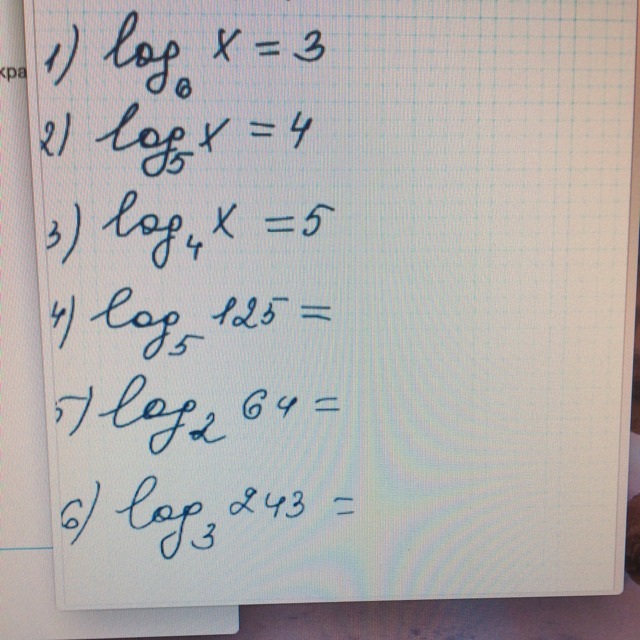 кра
1) log₆ x = 3
2) log₅ x = 4
3) log₄ x = 5
4) log₅ 125 =
5) log₂ 64 =
6) log₃ 243 =